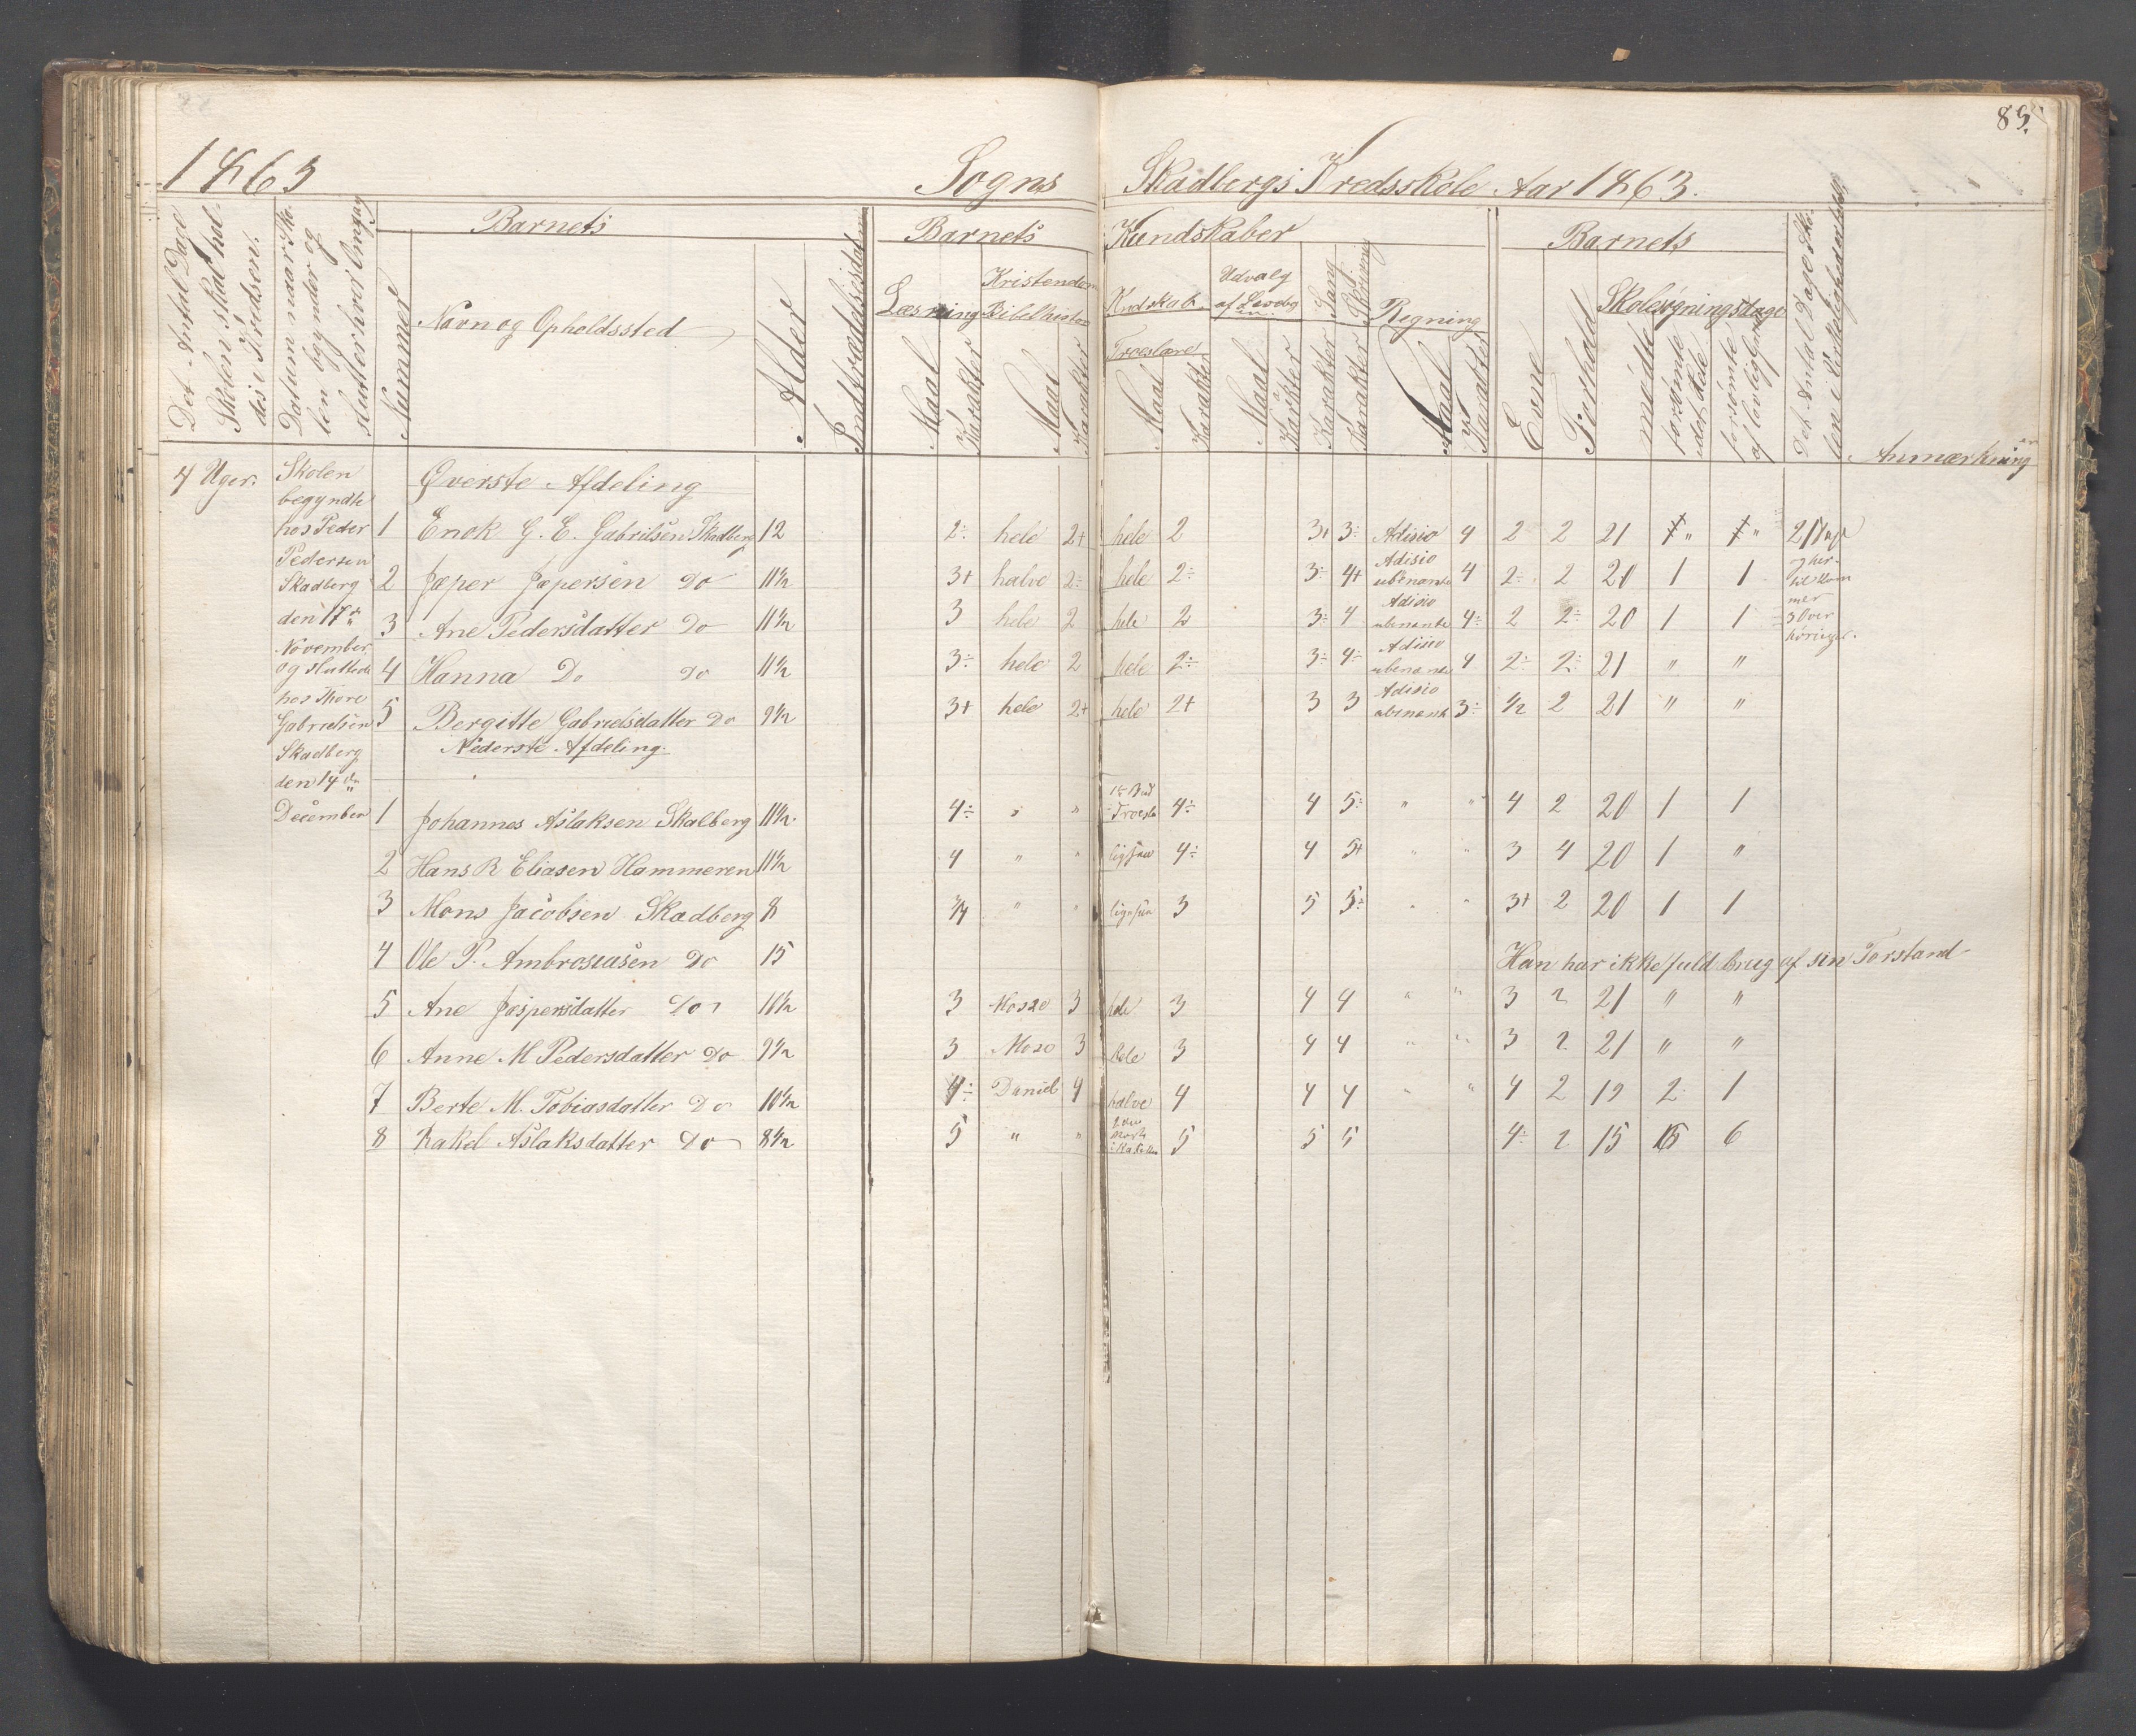 85.
1863 Sogns Skadbergs Kredsskole Aar 1863.
Det Antal Dage
Skolen skal hol-
des i Kredsen.
Datum naar Sko-
len begynder og
slutter hver Omgang
Nummer
Barnets
Navn og Opholdssted
Alder
Indtrædelsesdatum
Barnets Kundskaber
Læsning
Maal
Karakter
Kristendom
Bibelhistorie
Maal
Karakter
Troeslære
Maal
Karakter
Udvalg
Maal
Karakter
Sang
Karakter
Skrivning
Karakter
Regning
Maal
Karakter
Barnets
Evne
Forhold
Skolesøgningsdage
mødte
forsømte
det hele
forsømte
af lovlig Grund
Det Antal Dage Sko-
len i Virkeligheden
Anmærkning
4 Uger.
Skolen
begyndte
hos Peder
Pedersen
Skadberg
den 17de
November,
og sluttede
hos Thore
Gabrielsen
Skadberg
den 14de
December
Øverste Afdeling
1 Enok G. E. Gabrilsen Skadberg 12 2÷ hele 2+ hele 2 3+ 3÷ Adisio 4 2 2 21 " " 21 Dage
2 Jæper Jæpersen Do 11½ 3+ halve 2÷ hele 2÷ 3÷ 4+ Adisio ubenante 4 2÷ 2 20 1 1
3 Ane Pedersdatter Do 11½ 3 hele 2 hele 2 3÷ 4 Adisio ubenante 4÷ 2 2÷ 20 1 1
og her-
til kom
mer
3 Over
høringer.
4 Hanna Do Do 11½ 3÷ hele 2 hele 2÷ 3÷ 4÷ Adisio ubenante 4 2÷ 2÷ 21 " "
5 Bergitte Gabrielsdatter Do 9½ 3+ hele 2+ hele 2+ 3 3 Adisio ubenante 3÷ ½ 2 21 " "
Nederste Afdeling.
1 Johannes Aslaksen Skalberg 11½ 4÷ " " 4÷ 4 5÷ " " 4 2 20 1 1
2 Hans R Eliasen Hammeren 11½ 4 " " 4÷ 4 5+ " " 3 4 20 1 "
3 Mons Jacobsen Skadberg 8 ¾ " " 3 5 5÷ " " 3+ 2 20 1 1
4 Ole P. Ambrosiusen Do 15 Han har ikke fuld brug af sin Forstand
5 Ane Jespersdatter Do 10½ 3 3 hele 3 4 4 " " 3 2 21 " "
6 Anne M Pedersdatter Do 9½ 3 3 hele 3 4 4 " " 3 2 21 " "
7 Berte M. Tobiasdatter Do 10½ 4÷ Daniel 4 halve 4 4 4 " " 4 2 19 2 1
8 Rakel Aslaksdatter Do 8½ 5 " " 5 5 5 4÷ 2 15 6